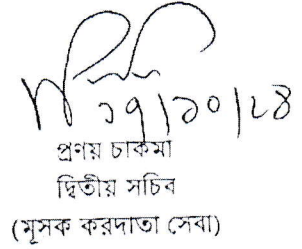 ১৭/১০/২৪
প্রণয় চাকমা
দ্বিতীয় সচিব
(মূসক করদাতা সেবা)